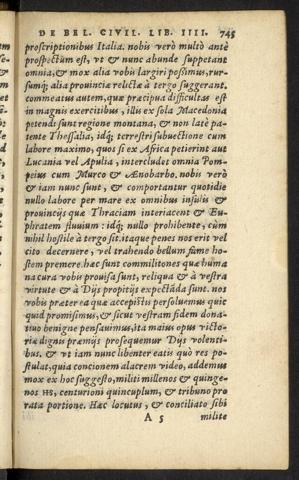 DE BEL. CIVIL. LIB. IIII. 745
proscriptionibus Italia. nobis verò multò antè
prospectum est, vt & nunc abunde suppetant
omnia, & mox alia vobis largiri possimus, rur-
sumq; alia prouinciæ relictæ à tergo suggerant.
commeatus autem, quæ præcipua difficultas est
in magnis exercitibus, illis ex sola Macedonia
petendi sunt regione montana, & non latè pa-
tente Thessalia, idq; terrestri subuectione cum
labore maximo, quos si ex Africa petierint aut
Lucania vel Apulia, intercludet omnia Pom-
peius cum Murco & Ænobarbo. nobis verò
& iam nunc sunt, & comportantur quotidie
nullo labore per mare ex omnibus insulis &
prouincijs quæ Thraciam interiacent & Eu-
phratem fluuium: idq; nullo prohibente, cùm
nihil hostile à tergo sit. itaque penes nos erit vel
citò decernere, vel trahendo bellum fame ho-
stem premere. hæc sunt commilitones quæ huma
na cura vobis prouisa sunt, reliqua & à vestra
virtute & à Dijs propitijs expectãda sunt. nos
vobis præter ea quæ accepistis persoluemus quic
quid promisimus, & sicut vestram fidem dona-
tiuo benigne pensauimus, ita maius opus victo-
riæ dignis præmijs prosequemur Dijs volenti-
bus. & vt iam nunc libenter eatis quò res po-
stulat, quia concionem alacrem video, addemus
mox ex hoc suggesto, militi millenos & quinge-
nos HS, centurioni quincuplum, & tribuno pro
rata portione. Hæc locutus, & conciliato sibi
A 5 milite